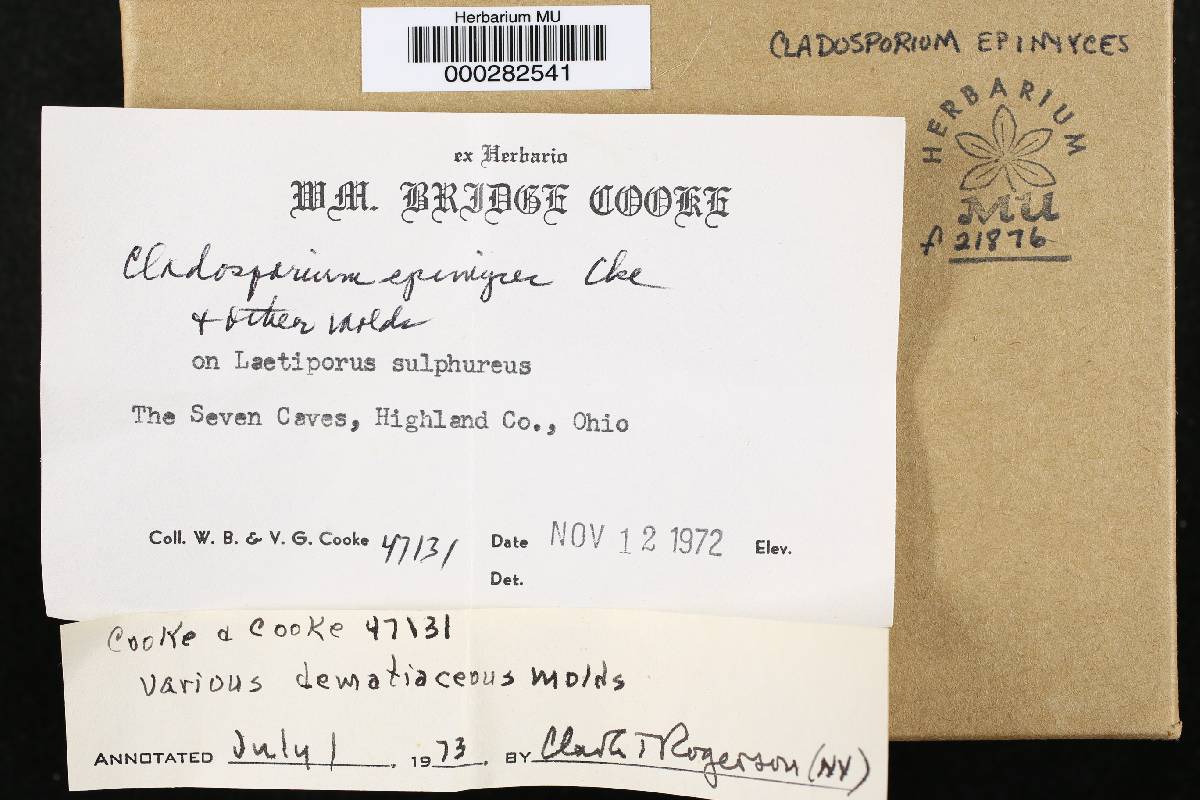 Herbarium MU
000282541
CLADOSPORIUM EPIMYCES
HERBARIUM
MU
f 21876
ex Herbario
WM. BRIDGE COOKE
Cladosporium epimyces Cke
& other molds
on Laetiporus sulphureus
The Seven Caves, Highland Co., Ohio
Coll. W. B. & V. G. Cooke 47131 Date NOV 12 1972 Elev.
Det.
Cooke & Cooke 47131
Various dematiaceous molds
ANNOTATED July 1, 1973, BY Clark T Rogerson (NY)